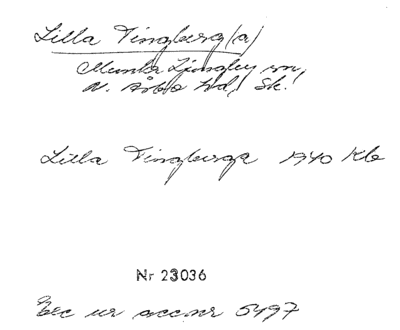 Lilla Tingberg(a)
Munka Ljungby sn,
N. Åsbo hd, Sk.
Lilla Tingberga 1940 Kle
Nr 23036
Exc ur acc.nr 5497